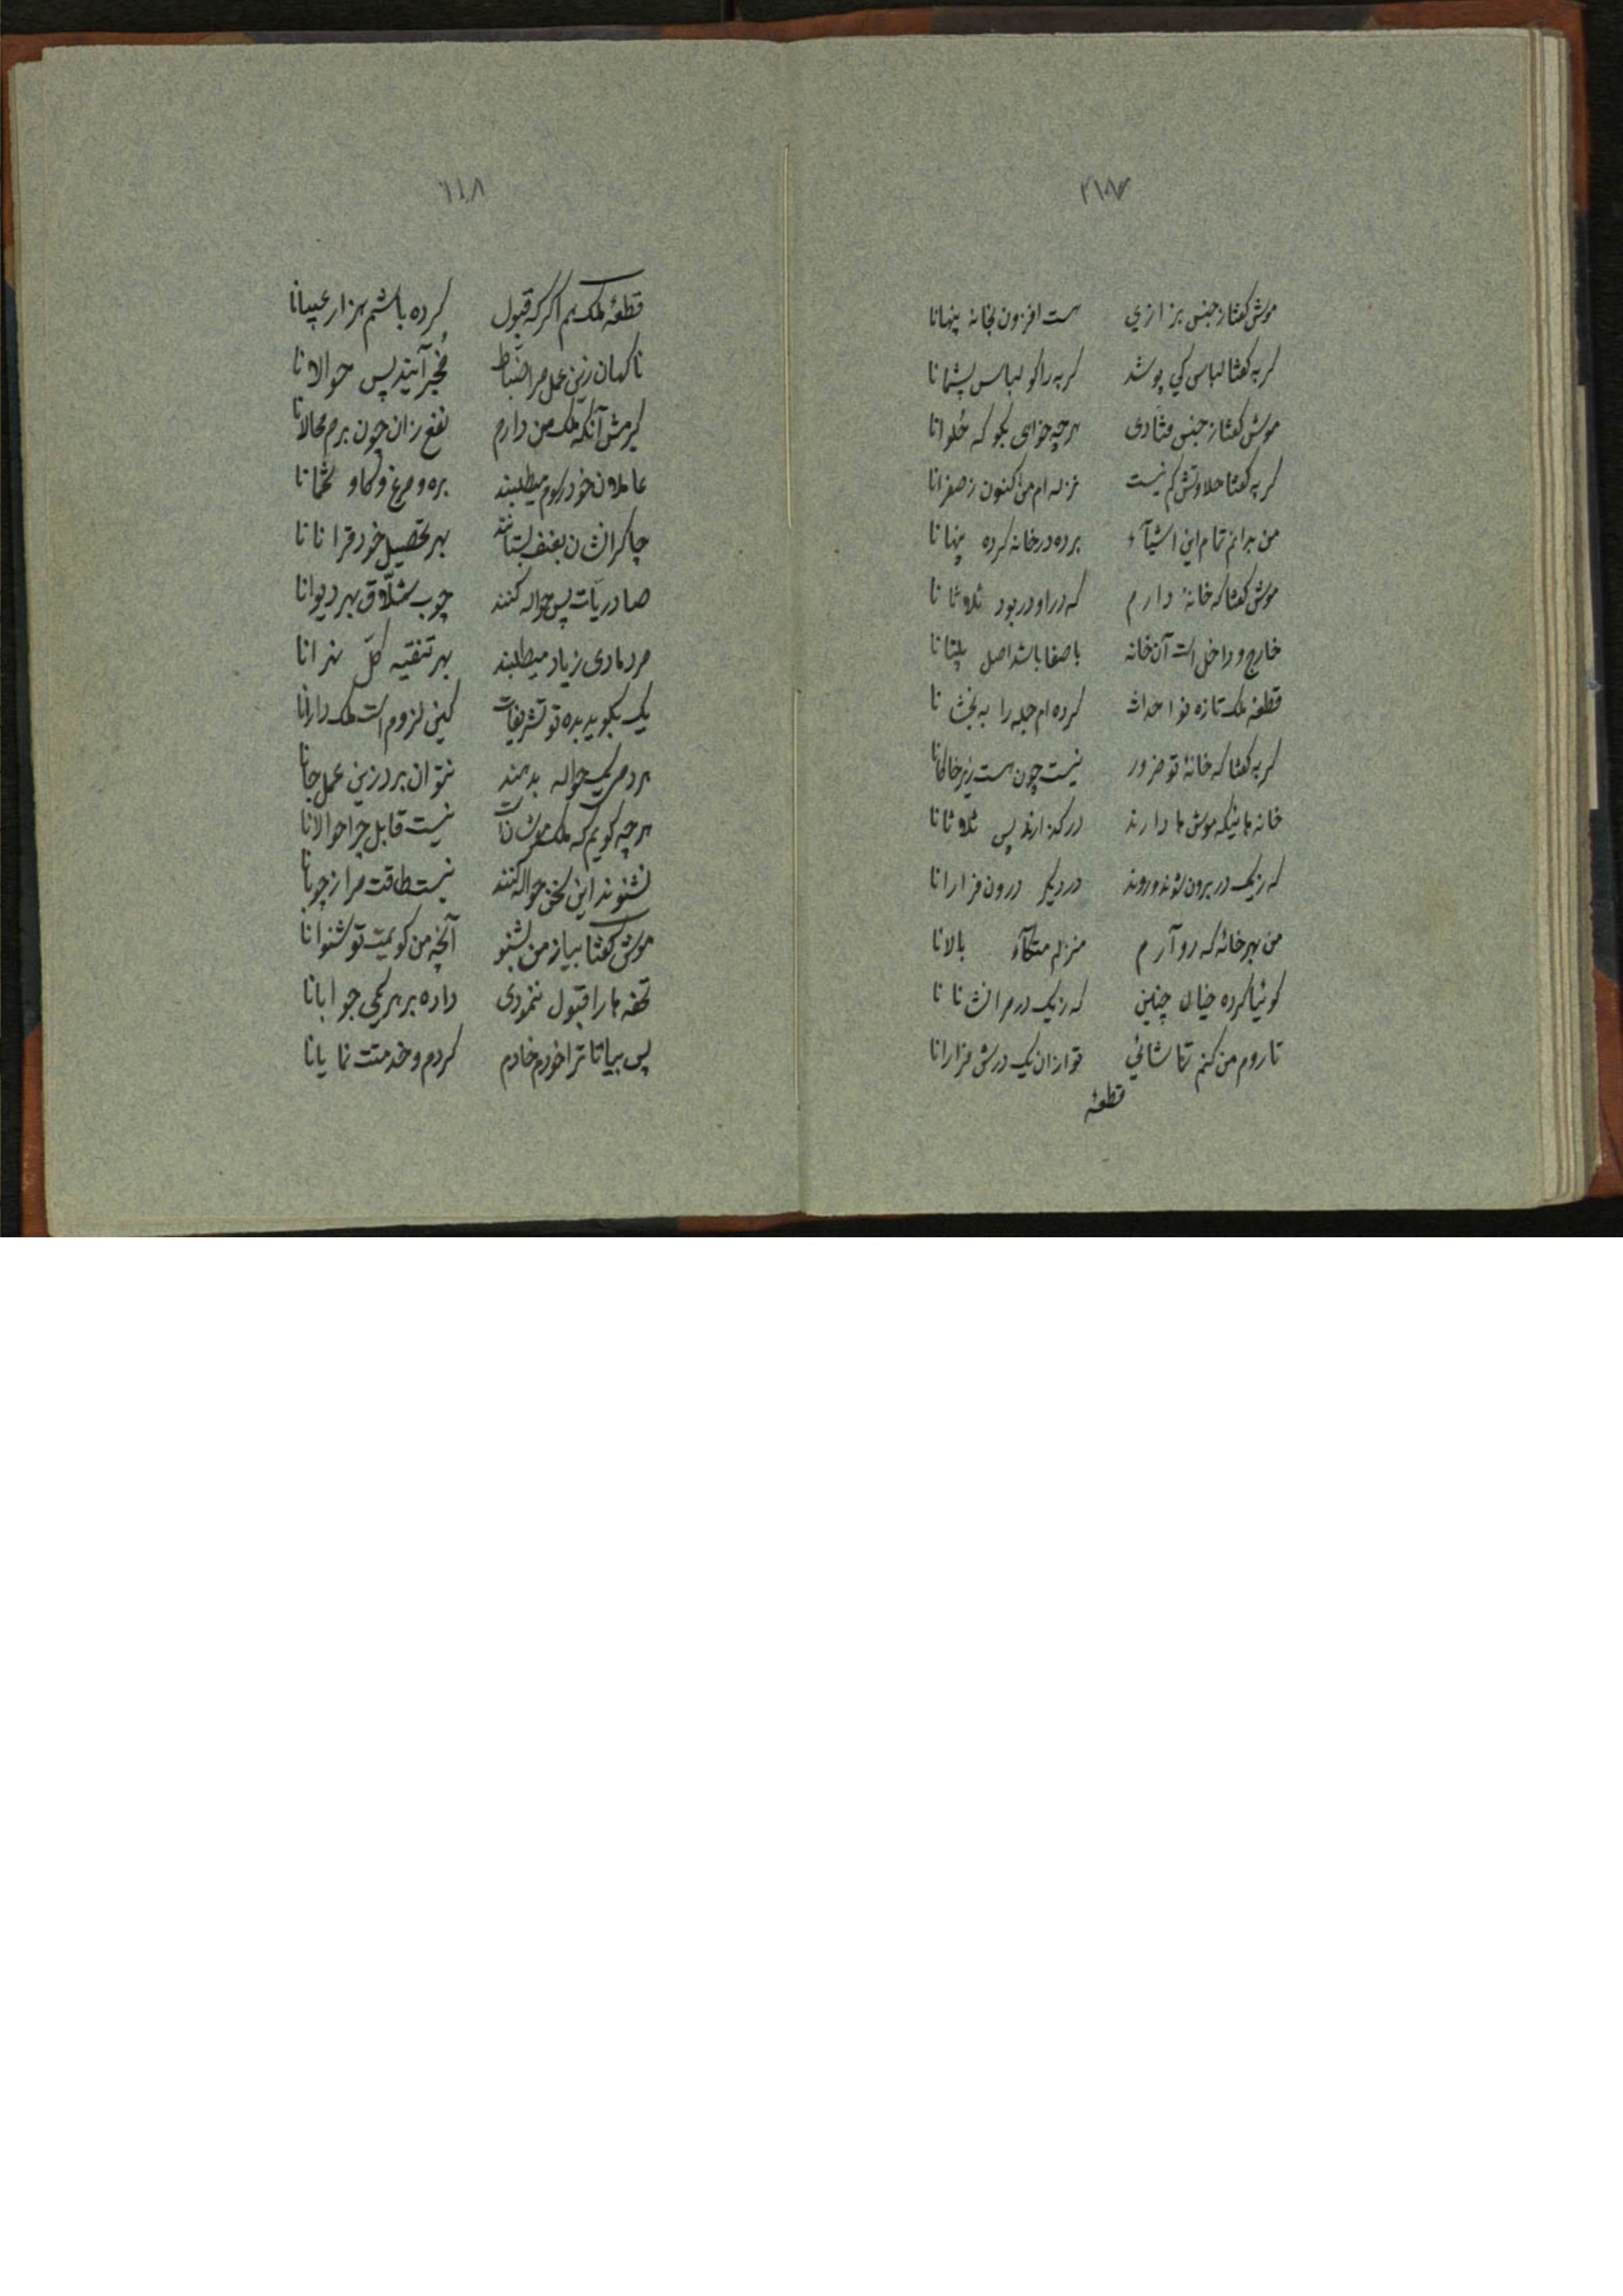 موش گفتا ز جنس بزازی هست افزون بخانه پنهانا
گربه گفتا لباس کی پوشد گربه را کو لباس پشمانا
موش گفتا ز جنس قنادی هرچه خواهی بگو که حلوانا
گربه گفتا حلاوتش کم نیست نزله ام من کنون ز صفرانا
من برانم تمام این اشیآء برده در خانه کرده پنهانا
موش گفتا که خانهٔ دارم که در او در بود ثلاثانا
خارج و داخل است آن خانه با صفا باشد اصل
قطعه ملک تازه نو احداث کرده ام جمله را به بخشانا
گربه گفتا که خانهٔ تو ضرور نیست چون هست زیر خاکانا
خانه هائیکه موش ها دارند در گذارند پس ثلاثانا
که ز یک در برون شوند و روند در دیگر درون فرارانا
من بهر خانه که رو آرم منزلم متکاء بالانا
گوئیا کرده خیال چنین که ز یک در مرا نشانانا
تا روم من کنم تماشائی تو ازان یک درش فرارانا
قطعهٔ
قطعهٔ ملک هم اگر که قبول کرده باشم هزار عیبانا
ناگهان زین عمل مرا ضباط مخبر آیند پس حوالانا
گیرمش آنکه ملک من دارم نفع زان چون برم محالانا
عاملان خود رسوم میطلبند بره و مرغ و گاو تخمانا
چاکرانشان بعنف بستانند بهر تحصیل خود قرانانا
صادریات پس حواله کنند چوب شلاق بهر دیوانا
مرد هادی زیاد میطلبند بهر تنقیه کل نهرانا
یک بگوید بده تو تشریفات کین لزوم است ملک دارانا
هر دم یک حواله بدهند نتوان برد زین عمل جانا
هرچه گویم که ملک موشانست نیست قابل چرا حوالانا
نشنوند این سخن حواله کنند نیست طاقت مرا ز چوبانا
موش گفتا بیا ز من بشنو آنچه من گویمت تو شنوانا
تحفه ها را قبول ننمودی داده بر هر یکی جوابانا
پس بیا تا ترا خودم خادم کردم و خدمتت نمایانا